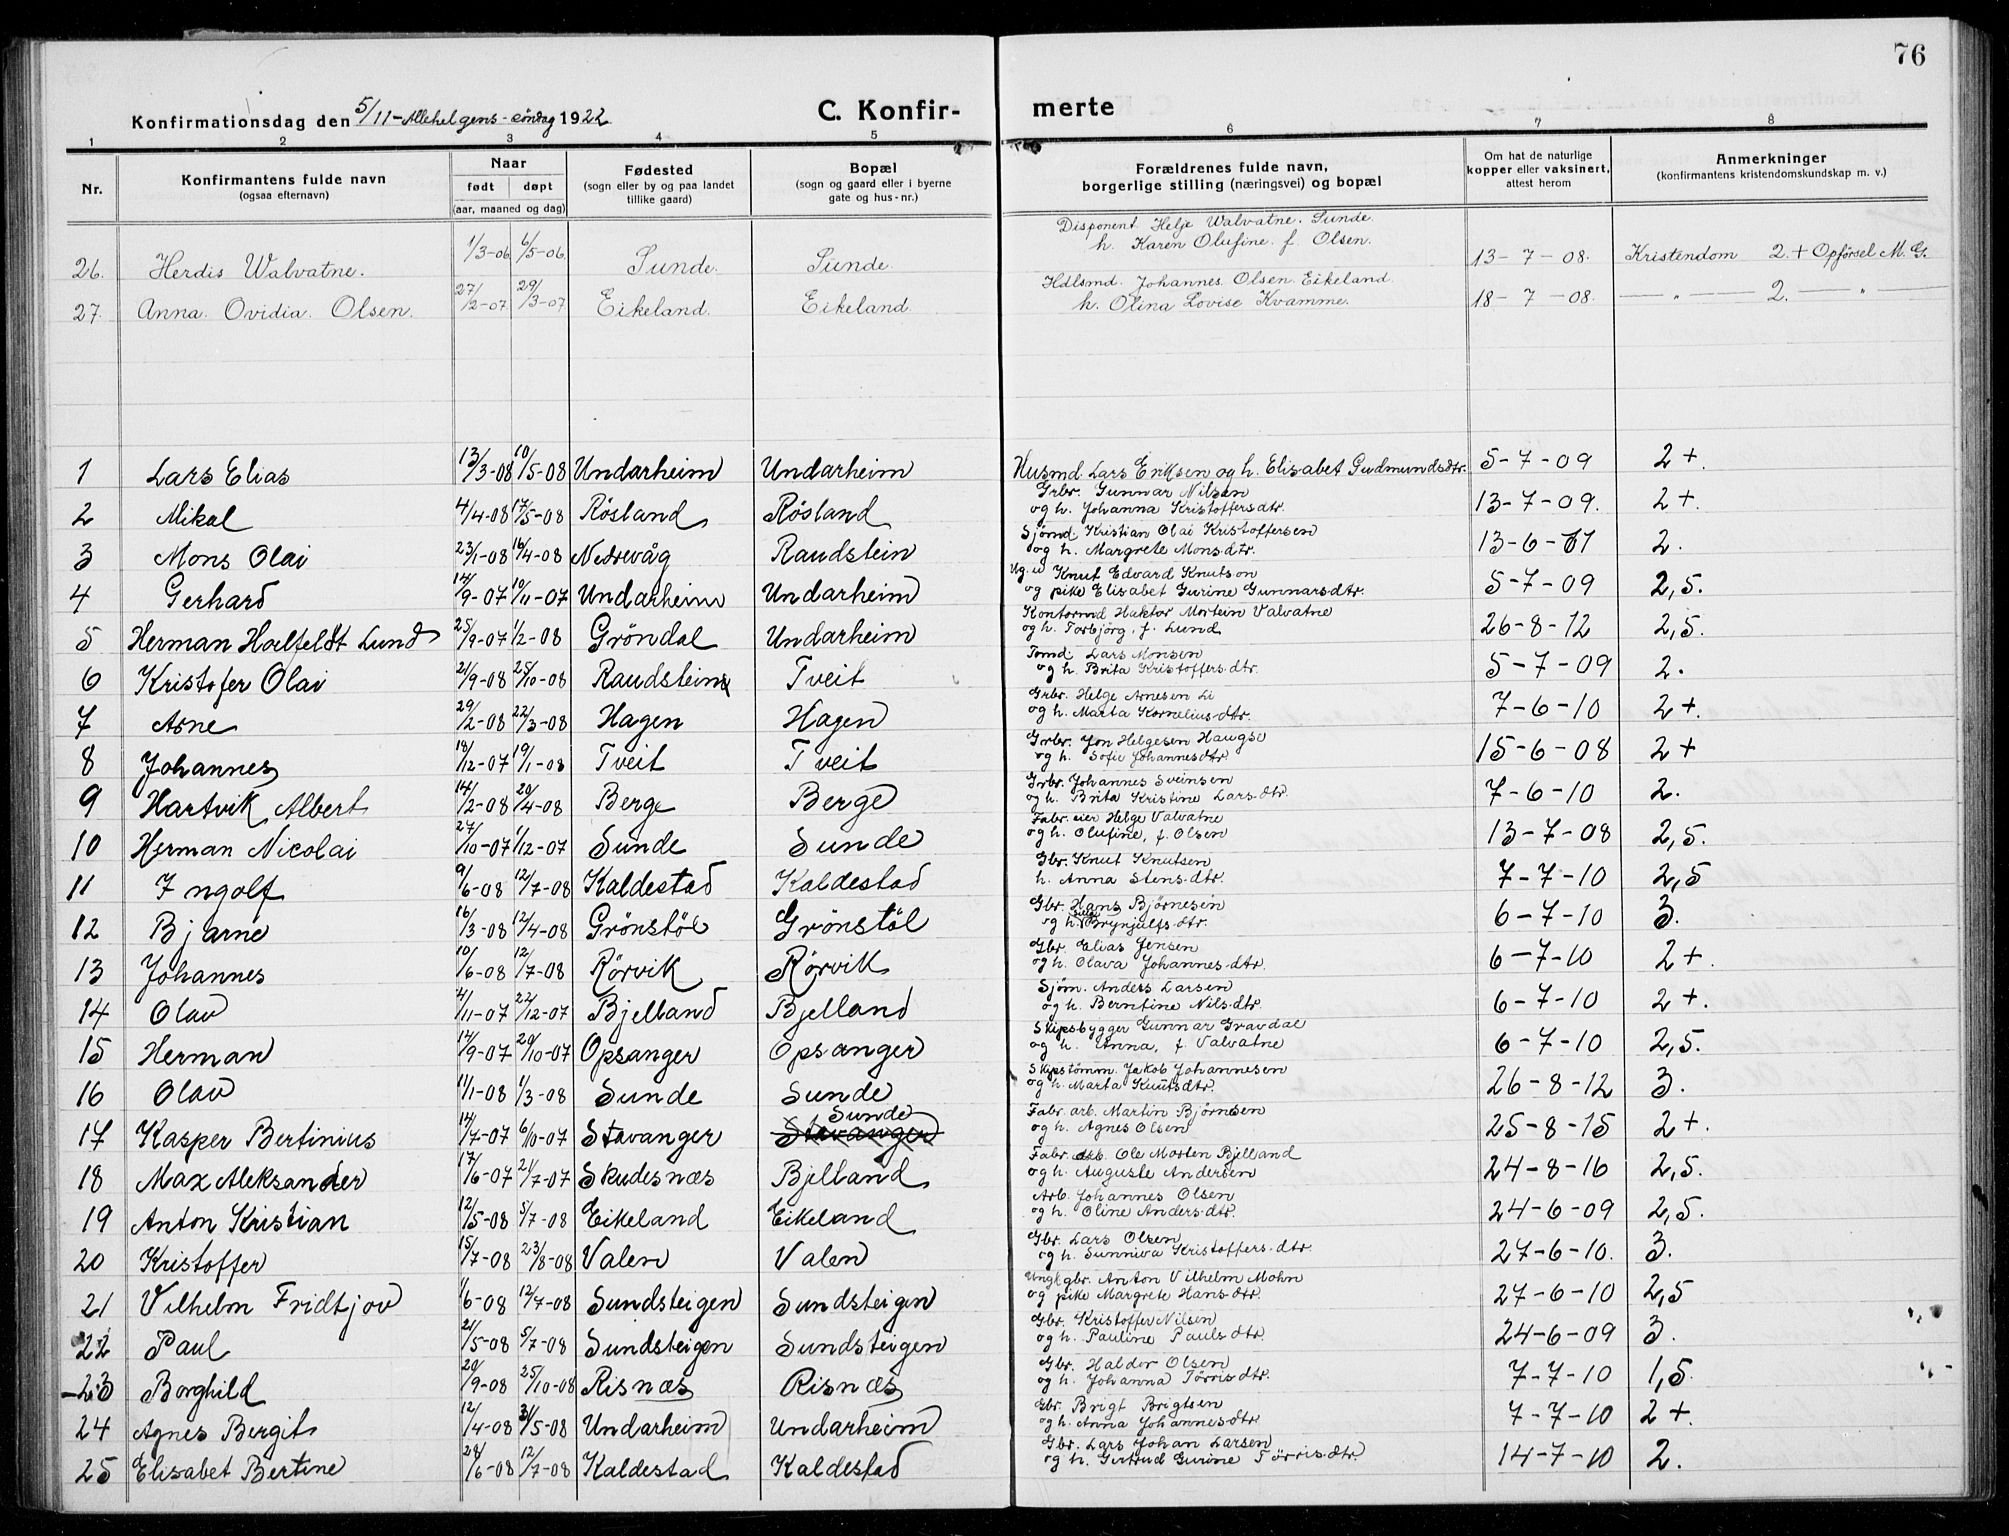 76
Konfirmationsdag den 5/11 - Allehelgens-søndag 1922
C. Konfir- merte
1 2 3 4 5 6 7 8
Nr. Konfirmantens fulde navn (ogsaa efternavn) Naar født døpt (aar, maaned og dag) Fødested (sogn eller by og paa landet tillike gaard) Bopæl (sogn og gaard eller i byerne gate og hus-nr.) Forældrenes fulde navn, borgerlige stilling (næringsvei) og bopæl Om hat de naturlige kopper eller vaksinert, attest herom Anmerkninger (konfirmantens kristendomskundskap m. v.)
26. Herdis Walvatne. 1/3-06 6/5-06 Sunde. Sunde. Disponent Helje Walvatne. Sunde. h. Karen Olufine. f. Olsen. 13-7-08. Kristendom 2.+ Opførsel M.G.
27. Anna. Ovidia. Olsen. 27/2-07 29/3-07 Eikeland. Eikeland. Hdlsmd. Johannes Olsen. Eikeland. h. Olina Lovise Kvamme. 18-7-08. — " — 2. — " —
1 Lars Elias 13/3-08 10/5-08 Undarheim Undarheim Husmd. Lars Eriksen og h. Elisabet Gudmundsdtr. 5-7-09 2+.
2 Mikal 4/4-08 17/5-08 Røsland Røsland Grbr. Gunnar Nilsen og h. Johanna Kristoffersdtr. 13-7-09. 2+.
3 Mons Olai 23/1-08 16/4-08 Nedrevåg Raudstein Sjømd. Kristian Olai Kristoffersen og h. Margrete Monsdtr. 13-6-11 2.
4 Gerhard 14/9-07 10/11-07 Undarheim Undarheim Ug. u Knut Edvard Knutson og pike Elisabet Gurine Gunnarsdtr. 5-7-09 2,5.
5 Herman Hoelfeldt Lund 25/9-07 1/2-08 Grøndal Undarheim Kontormd Haktor Mortein Valvatne og h. Torbjørg, f. Lund 26-8-12 2,5.
6 Kristofer Olai 21/9-08 25/10-08 Raudstein Tveit Tomd. Lars Monsen og h. Brita Kristoffersdtr. 5-7-09 2.
7 Arne 29/2-08 22/3-08 Hagen Hagen Grbr. Helge Arnesen Li og h. Marta Korneliusdtr. 7-6-10 2+.
8 Johannes 18/12-07 19/1-08 Tveit Tveit Grbr. Jon Helgesen Haugse og h. Sofie Johannesdtr. 15-6-08 2+
9 Hartvik Albert 14/2-08 20/4-08 Berge Berge Grbr. Johannes Sveinsen og h. Brita Kristine Larsdtr. 7-6-10 2.
10 Herman Nicolai 27/10-07 1/12-07 Sunde Sunde Fabr.eier Helge Valvatne og h. Olufine, f. Olsen 13-7-08 2,5.
11 Ingolf 9/6-08 12/7-08 Kaldestad Kaldestad Gbr. Knut Knutsen h. Anna Stensdtr. 7-7-10 2,5
12 Bjarne 16/3-08 12/4-08 Grønstöl Grønstöl Gbr. Hans Bjørnesen og h. Brynjulfsdtr. 6-7-10 3.
13 Johannes 10/6-08 12/7-08 Rørvik Rørvik Gbr. Elias Jensen og h. Olava Johannesdtr. 6-7-10 2+.
14 Olav 4/11-07 22/12-07 Bjelland Bjelland Sjøm. Anders Larsen og h. Berntine Nilsdtr. 6-7-10 2+.
15 Herman 14/9-07 20/10-07 Opsanger Opsanger Skipsbygger Gunnar Gravdal og h. Anna, f. Valvatne 6-7-10 2,5.
16 Olav 11/1-08 1/3-08 Sunde Sunde Skipstömm. Jakob Johannesen og h. Marta Knutsdtr. 26-8-12 3.
17 Kasper Bertinius 14/7-07 6/10-07 Stavanger Stavanger Sunde Fabr. arb. Martin Bjørnesen og h. Agnes Olsen 25-8-15 2+.
18 Max Aleksander 17/6-07 21/7-07 Skudesnæs Bjelland Fabr. arb. Ole Morten Bjelland og h. Auguste Andersen 24-8-16 2,5.
19 Anton Kristian 12/5-08 5/7-08 Eikeland Eikeland Arb. Johannes Olsen og h. Oline Andersdtr. 24-6-09 2,5.
20 Kristoffer 15/7-08 23/8-08 Valen Valen Gbr. Lars Olsen og h. Sunniva Kristoffersdtr. 27-6-10. 3.
21 Vilhelm Fridtjov 1/6-08 12/7-08 Sundsteigen Sundsteigen Ungkgbr. Anton Vilhelm Mohn og pike Margrete Hansdtr. 27-6-10 2,5
22 Paul 21/5-08 5/7-08 Sundsteigen Sundsteigen Gbr. Kristoffer Nilsen og h. Pauline Paulsdtr. 24-6-09 3.
23 Borghild 20/9-08 25/10-08 Risnæs Risnæs Gbr. Haldor Olsen og h. Johanna Tørrisdtr. 7-7-10 1,5.
24 Agnes Bergit 12/4-08 31/5-08 Undarheim Undarheim Gbr. Brigt Brigtsen og h. Anna Johannesdtr. 7-7-10 2+.
25 Elisabet Bertine 28/6-08 12/7-08 Kaldestad Kaldestad Gbr. Lars Johan Larsen og h. Gertrud Gurine Tørrisdtr. 14-7-10 2.